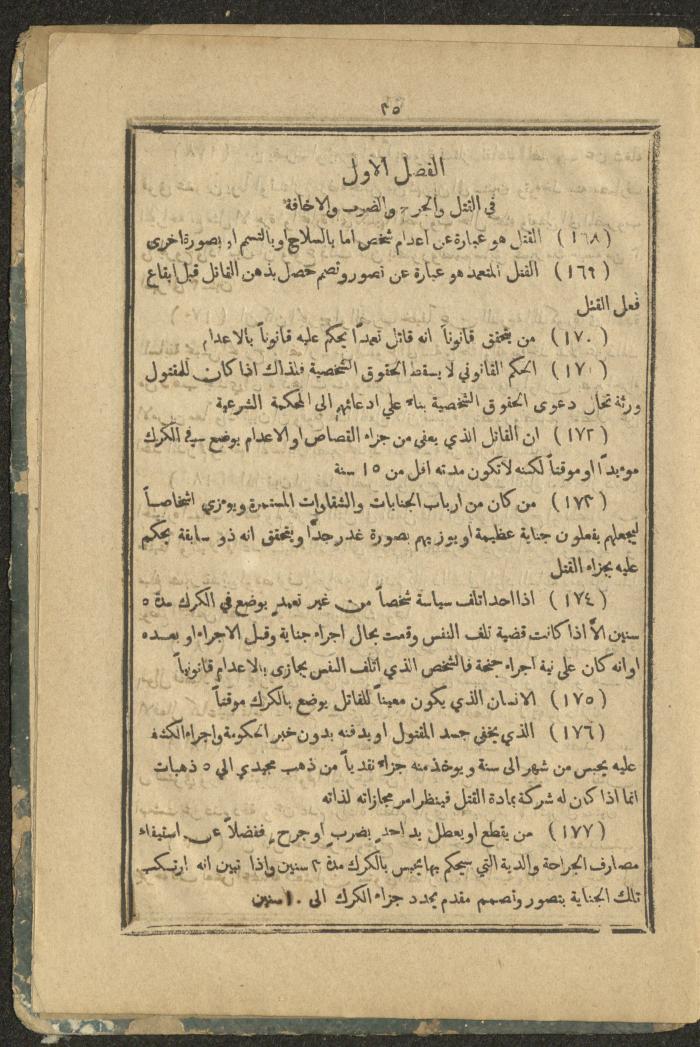 ٣٥
الفصل الاول
في القتل والجرح والضرب والاخافة
(١٦٨) القتل هو عبارة عن اعدام شخص اما بالسلاح او بالتسم او بصورة اخرى
(١٦٩) القتل المتعمد هو عبارة عن تصور وتصمم حصل بذهن القاتل قبل ايقاع
فعل القتل
(١٧٠) من يتحقق قانوناً انه قاتل تعمداً يحكم عليه قانوناً بالاعدام
(١٧١) الحكم القانوني لا يسقط الحقوق الشخصية فلذلك اذا كان للمقتول
ورثة تحال دعوى الحقوق الشخصية بناء علي ادعائهم الى المحكمة الشرعية
(١٧٢) ان القاتل الذي يعفى من جزاء القصاص او الاعدام يوضع في الكرك
موءبداً او موقتاً لكنه لا تكون مدته اقل من ١٥ سنة
(١٧٣) من كان من ارباب الجنايات والشقاوات المستمرة ويوءزي اشخاصاً
ليجعلهم يفعلون جناية عظيمة او يوزيهم بصورة غدر جداً ويتحقق انه ذو سابقة يحكم
عليه بجزاء القتل
(١٧٤) اذا احد اتلف سياسة شخصاً من غير تعمدٍ يوضع في الكرك مدة ٥
سنين الاَّ اذا كانت قضية تلف النفس وقعت بحال اجراء جناية وقبل الاجراء او بعده
او انه كان على نية اجراء جنحة فالشخص الذي اتلف النفس يجازى بالاعدام قانونياً
(١٧٥) الانسان الذي يكون معيناً للقاتل يوضع بالكرك موقتاً
(١٧٦) الذي يخفي جسد المقتول او يدفنه بدون خبر الحكومة واجراء الكشف
عليه يحبس من شهر الى سنة ويوخذ منه جزاء نقدياً من ذهب مجيدي الي ٥ ذهبات
انما اذا كان له شركة بمادة القتل فينظر امر مجازاته لذاته
(١٧٧) من يقطع او يعطل يد احدٍ بضربٍ او جرحٍ ففضلاً عن استيفاء
مصارف الجراحة والدية التي سيحكم بها يحبس بالكرك مدة ٣ سنين واذا تبين انه ارتكب
تلك الجناية بتصور وتصمم مقدم يحدد جزاء الكرك الى ١٠ سنين